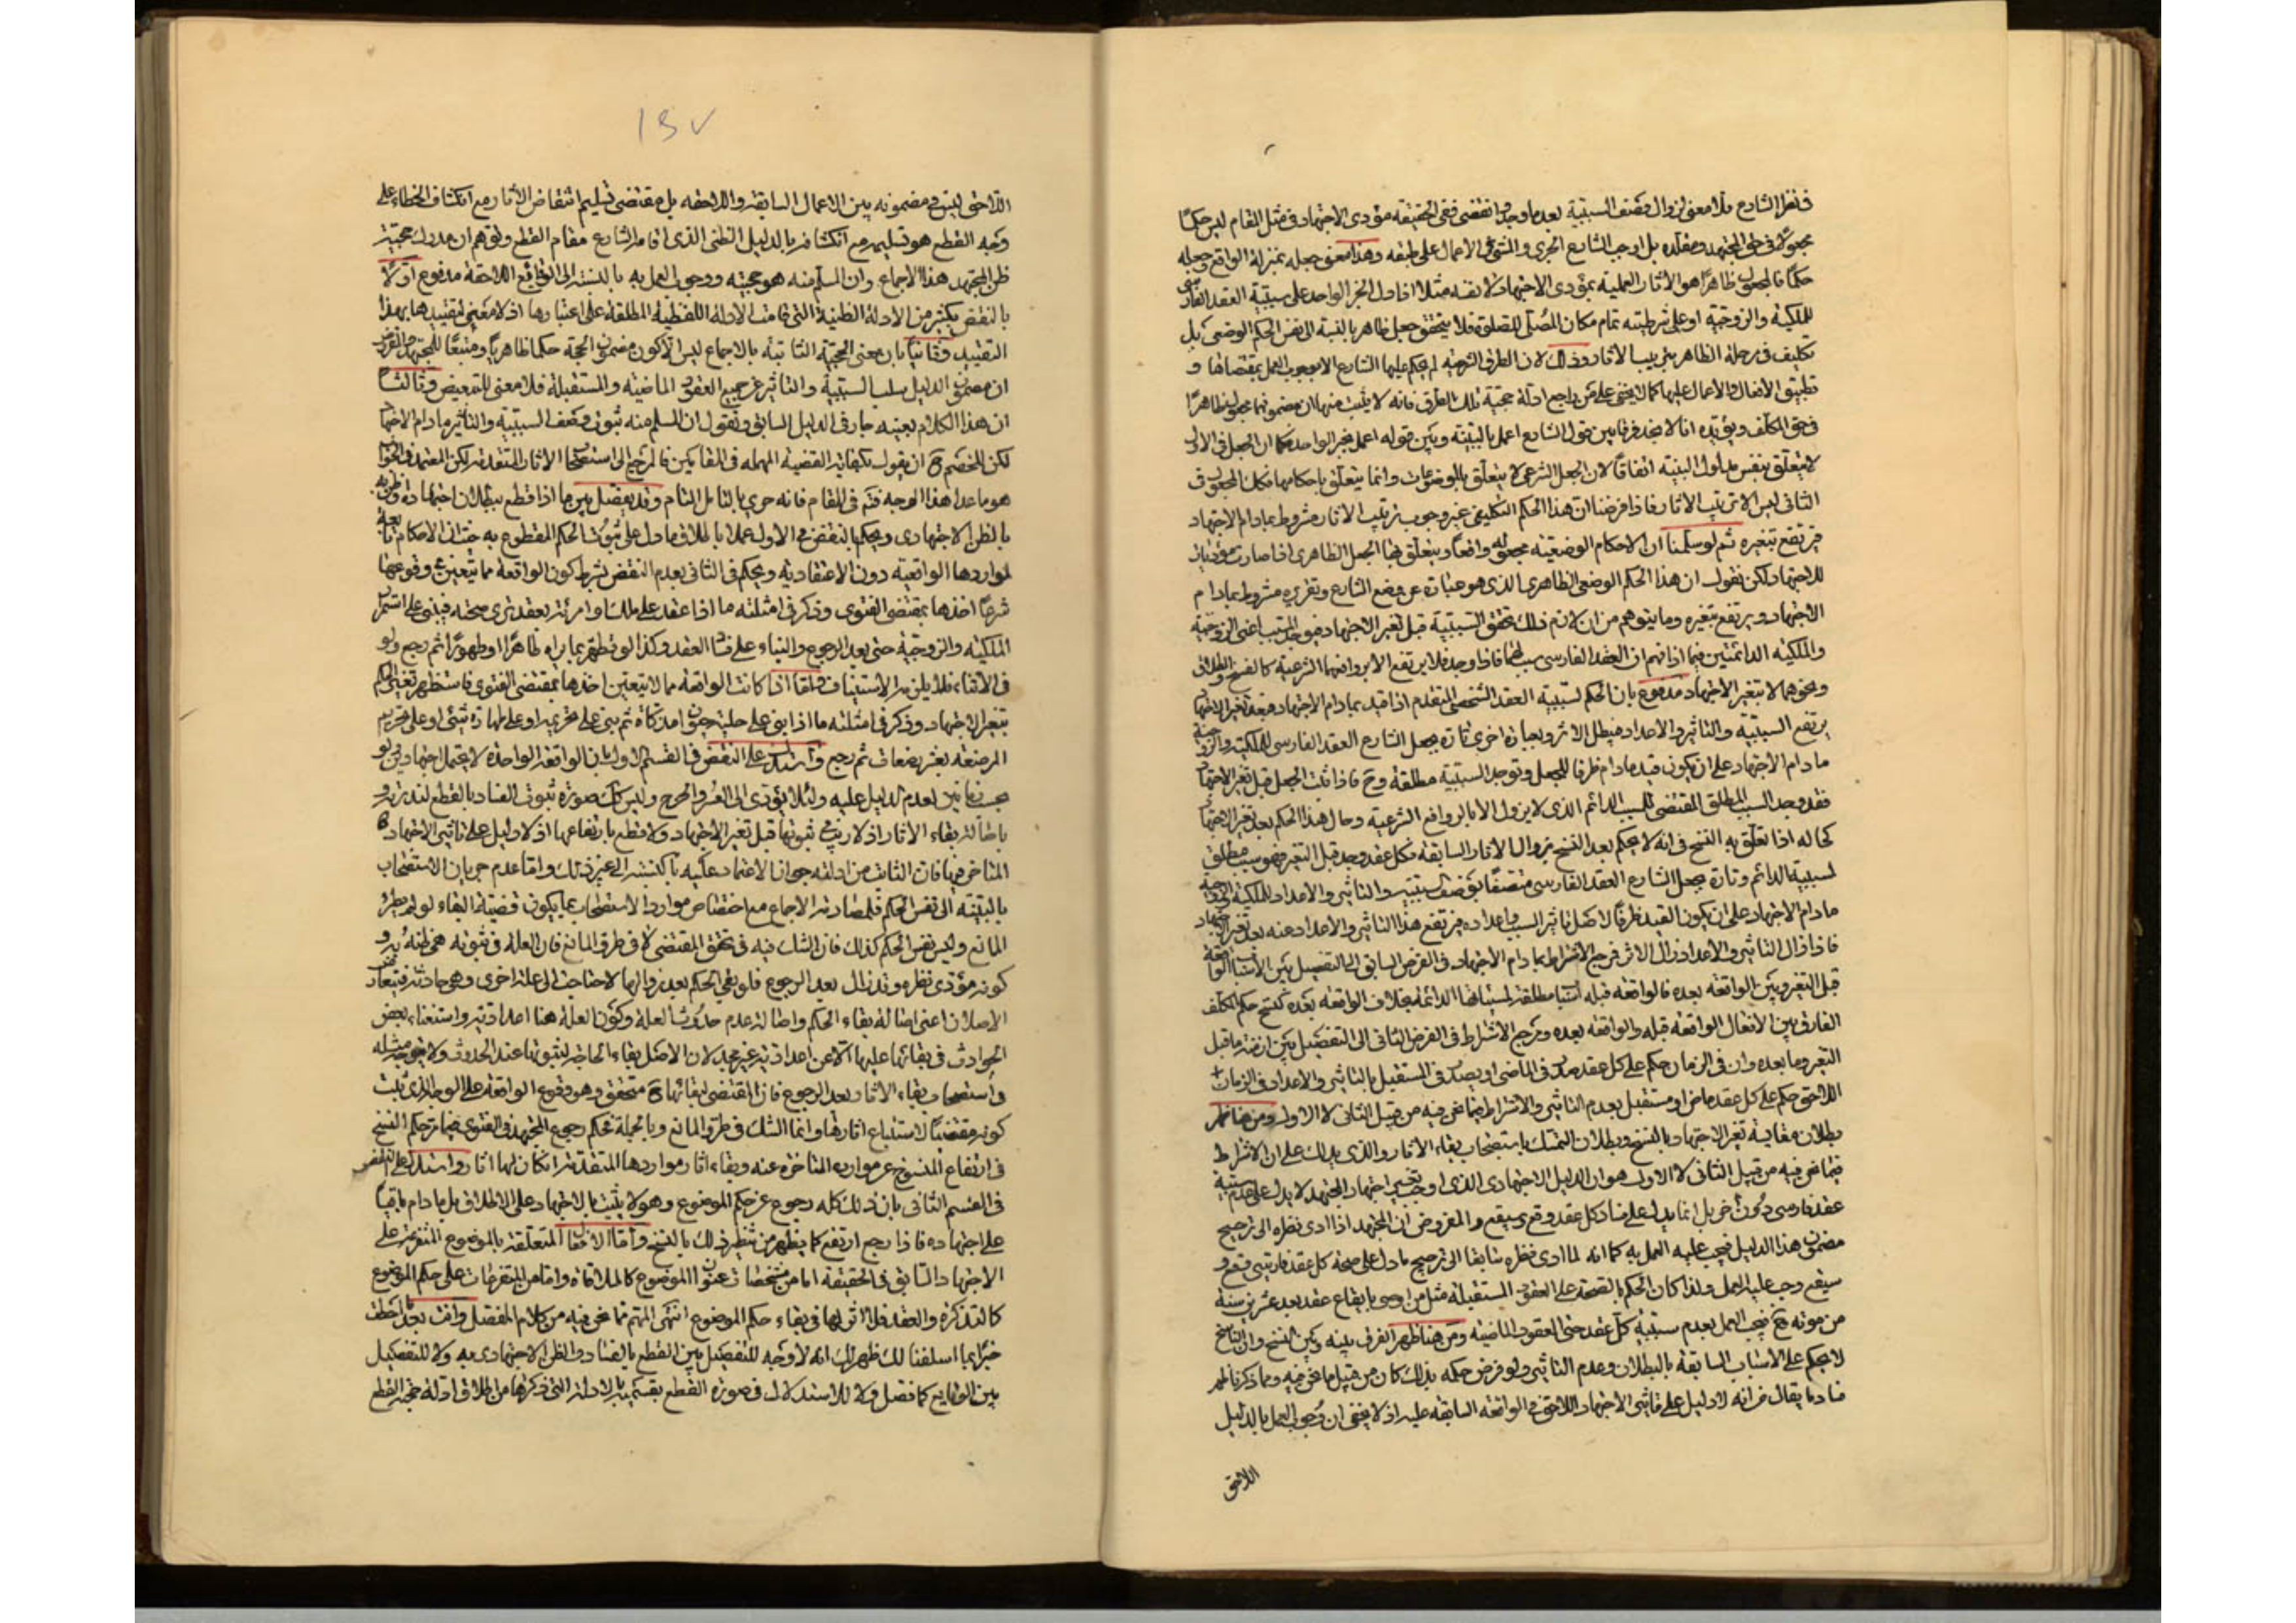 في نظر الشارع فلا معنى لزوال وصف السببية بعد ما وجد وانقضى ففي الحقيقة مؤدى الاجتهاد في مثل المقام ليس حكمًا
مجعولًا في حق المجتهد ومقلده بل اوجب الشارع الجري والمشي في الاعمال على طبقه وهذا معنى جعله بمنزلة الواقع وجعله
حكمًا فالمجعول ظاهرًا هو الاثار العملية بمؤدى الاجتهاد لا نفسه مثلا اذا دل الخبر الواحد على سببية العقد الفارسي
للملكية والزوجية او على شرطيته تمام مكان المصلى للصلوة فلا يتحقق جعل ظاهر بالنسبة الى نفس الحكم الوضعي بل
تكليف في مرحلة الظاهر بترتيب الاثار وذلك لان الطرق الشرعية لم يحكم عليها الشارع الا بوجوب العمل بمقتضاها و
تطبيق الافعال والاعمال عليها كما لا يخفى على من راجع ادلة حجية تلك الطرق فانه لا يثبت منها ان مضمونها مجعول ظاهرًا
في حق المكلف ويؤيده انا لا نجد فرقا بين قول الشارع اعمل بالبينة وبين قوله اعمل بخبر الواحد فكما ان الجعل في الاول
لا يتعلق بنفس مدلول البينة اتفاقًا لان الجعل الشرعي لا يتعلق بالموضوعات وانما يتعلق باحكامها فكذا المجعول في
الثاني ليس الا ترتيب الاثار فاذا فرضنا ان هذا الحكم التكليفي عني وجوب ترتيب الاثار مشروط بما دام الاجتهاد
فيرتفع بتغيره ثم لو سلمنا ان الاحكام الوضعية مجعولة واقعًا ويتعلق بها الجعل الظاهري اذا صارت مؤديات
للاجتهاد لكن نقول ان هذا الحكم الوضعي الظاهري الذي هو عبارة عن وضع الشارع وتقريره مشروط بما دام
الاجتهاد ويرتفع بتغيره وما يتوهم من ان لازم ذلك تحقق السببية قبل تغير الاجتهاد فيوجد المسبب اعني الزوجية
والملكية الدائمتين فيما اذا فهم ان العقد الفارسي سبب لهما فاذا وجد فلا يرتفع الا بروافعها الشرعية كالفسخ والطلاق
ونحوهما لا بتغير الاجتهاد مدفوع بان الحكم لسببية العقد الشخصي المتقدم اذا قيد بما دام الاجتهاد فبعد تغير الاجتهاد
يرتفع السببية والتاثير والاعداد فيبطل الاثر وبعبارة اخرى تارة يجعل الشارع العقد الفارسي للملكية والزوجية
ما دام الاجتهاد على ان يكون قيد ما دام ظرفا للجعل وتوجد السببية مطلقة وح فاذا ثبت الجعل قبل تغير الاجتهاد
فقد وجد السبب المطلق المقتضي للمسبب الدائم الذي لا يزول الا بالروافع الشرعية وحال هذا الحكم بعد تغير الاجتهاد
كحاله اذا تعلق به النسخ في انه لا يحكم بعد النسخ بزوال الاثار السابقة فكل عقد وجد قبل التغير فهو سبب مطلق
لسببية الدائم وتارة يجعل الشارع العقد الفارسي متصفًا بوصف سببيته والتاثير والاعداد للملكية والزوجية
ما دام الاجتهاد على ان يكون القيد ظرفًا لاصل تاثير السبب واعداده فيرتفع هذا التاثير والاعداد عنه بعد تغير الاجتهاد
فاذا زال التاثير والاعداد زال الاثر فمرجع الاشتراط بما دام الاجتهاد في الفرض السابق الى التفصيل بين الاسباب الواقعة
قبل التغير وبين الواقعة بعده فالواقعة قبله اسباب مطلقة لمسبباتها الدائمة بخلاف الواقعة بعده كنسخ حكم المكلف
الفارق بين الافعال الواقعة قبله والواقعة بعده ومرجع الاشتراط في الفرض الثاني الى التفصيل بين ازمنة ما قبل
التغير وما بعده وان في الزمان حكم على كل عقد صدر في الماضي او يصدر في المستقبل بالتاثير والاعداد وفي الزمان
اللاحق حكم على كل عقد ماض او مستقبل بعدم التاثير والاشتراط فيما نحن فيه من قبيل الثاني لا الاول ومن هنا ظهر
بطلان مقايسة تغير الاجتهاد بالنسخ وبطلان التمسك باستصحاب بقاء الاثار والذي يدلك على ان الاشتراط
فيما نحن فيه من قبيل الثاني لا الاول هو ان الدليل الاجتهادي الذي اوجب تغيير اجتهاد المجتهد لا يدل على عدم سببية
عقد فارسي دون آخر بل انما يدل على فساد كل عقد وقع او سيقع والمفروض ان المجتهد اذا ادى نظره الى ترجيح
مضمون هذا الدليل فيجب عليه العمل به كما انه لما ادى نظره سابقا الى ترجيح ما دل على صحة كل عقد فارسي وقع و
سيقع وجب عليه العمل ولذا كان الحكم بالصحة على العقود المستقبلة مثل من اوصى بايقاع عقد بعد عشرين سنة
من موته ح فيجب العمل بعدم سببية كل عقد حتى العقود الماضية ومن هنا ظهر الفرق بينه وبين النسخ وان الناسخ
لا يحكم على الاسباب السابقة بالبطلان وعدم التاثير ولو فرض حكمه بذلك كان من قبيل ما نحن فيه ومما ذكرنا ظهر
فساد ما يقال من انه لا دليل على تاثير الاجتهاد اللاحق في الواقعة السابقة عليه اذ لا يخفى ان وجوب العمل بالدليل
اللاحق
١٤٧
اللاحق ليس في مضمونه بين الاعمال السابقة واللاحقة بل مقتضى تسليم انتقاض الاثار مع انكشاف الخطاء على
وجه القطع هو تسليمه مع انكشافه بالدليل الظني الذي اقامه الشارع مقام القطع وتوهم ان مدرك حجية
ظن المجتهد هذا الاجماع وان المسلم منه هو حجيته ووجوب العمل به بالنسبة الى الوقايع اللاحقة مدفوع اولًا
بالنقض بكثير من الادلة الظنية التي قامت الادلة اللفظية المطلقة على اعتبارها اذ لا معنى لتقييدها بهذا
التقييد وثانيًا بان معنى الحجية الثابتة بالاجماع ليس الا كون مضمون الحجة حكما ظاهريا ومتبعًا للمجتهد والفرض
ان مضمون الدليل سلب السببية والتاثير عن جميع العقود الماضية والمستقبلة فلا معنى للتبعيض وثالثًا
ان هذا الكلام بعينه جار في الدليل السابق ونقول ان المسلم منه ثبوت وصف السببية والتاثير ما دام الاجتهاد
لكن للخصم ح ان يقول بكفاية القضية المهملة في المقامين فالمرجع الى استصحاب الاثار المتقدمة لكن المعتمد في الجواب
هو ما عدا هذا الوجه فتم في المقام فانه حري بالتامل التام وقد يفصل بين ما اذا قطع ببطلان اجتهاده وظن به
بالظن الاجتهادي ويحكم بالنقض في الاول عملا باطلاق ما دل على ثبوت الحكم المقطوع به حيث ان الاحكام تابعة
لمواردها الواقعية دون الاعتقادية ويحكم في الثاني بعدم النقض بشرط كون الواقعة مما يتعين في وقوعها
شرعًا اخذها بمقتضى الفتوى وذكر في امثلته ما اذا عقد على ملك او امرئة بعقد يرى صحته فيبني على استمرار
الملكية والزوجية حتى بعد الرجوع والبناء على فساد العقد وكذا لو تطهر بما يراه طاهرًا او طهورًا ثم رجع ولو
في الاثناء فلا يلزمه الاستيناف وامّا اذا كانت الواقعة مما لا يتعين اخذها بمقتضى الفتوى فاستظهر تغير الحكم
بتغير الاجتهاد وذكر في امثلته ما اذا بنى على حلية حيوان فذكاه ثم بنى على تحريمه او على طهارة شئ او على تحريم
المرضعة بعشر رضعات ثم رجع واستدل على النقض في القسم الاول بان الواقعة الواحدة لا يحتمل اجتهادين ولو
بحسب زمانين لعدم الدليل عليه ولئلا يؤدي الى العسر والحرج وليس كك صورة ثبوت الفساد بالقطع لندرته و
باصالة بقاء الاثار اذ لا ريب في ثبوتها قبل تغير الاجتهاد ولا قطع بارتفاعها اذ لا دليل على تاثير الاجتهاد
المتاخر فيها فان الثابت من ادلته جواز الاعتماد عليه بالنسبة الى غير ذلك واما عدم جريان الاستصحاب
بالنسبة الى نفس الحكم فلمصادمته الاجماع مع اختصاص موارد الاستصحاب بما يكون قضيته البقاء لو لم يطرء
المانع وليس نفس الحكم كذلك فان الشك فيه في تحقق المقتضي لا في طرو المانع فان العلة في ثبوته هي ظنه به و
كونه مؤدى نظره وقد زال بعد الرجوع فلو بقي الحكم بعد زوالها لاحتاجت الى علة اخرى وهي حادثة فتعاضد
الاصلان اعني اصالة بقاء الحكم واصالة عدم حدوث العلة وكون العلة هنا اعدادية واستغناء بعض
الحوادث في بقائها عليها كالاعدادية غير مجد لان الاصل بقاء الحاجة لثبوتها عند الحدوث ولا يتوجه مثله
في استصحاب بقاء الاثار بعد الرجوع فان المقتضي لبقائها ح متحقق وهو وقوع الواقعة على الوجه الذي ثبت
كونه مقتضيًا لاستتباع اثارها وانما الشك في طرو المانع وبالجملة فحكم رجوع المجتهد في الفتوى فيما مر حكم النسخ
في ارتفاع المنسوخ عن موارده المتاخرة عنه وبقاء اثار مواردها المتقدمة ان كان لها اثار واستدل على النقض
في القسم الثاني بان ذلك كله رجوع عن حكم الموضوع وهو لا يثبت بالاجتهاد على الاطلاق بل ما دام باقيًا
على اجتهاده فاذا رجع ارتفع كما يظهر من تنظير ذلك بالنسخ واما الافعال المتعلقة بالموضوع المتفرعة على
الاجتهاد السابق في الحقيقة اما من مشخصات عنوان الموضوع كالملاقاة واما من المتفرعات على حكم الموضوع
كالتذكية والعقد فلا اثر لها في بقاء حكم الموضوع انتهى المهم مما نحن فيه من كلام المفصل وانت بعد ما احطت
خبرًا بما اسلفنا لك ظهر لك انه لا وجه للتفصيل بين القطع بالفساد والظن الاجتهادي به ولا للتفصيل
بين الوقايع كما فصل ولا للاستدلال في صورة القطع بقسميه بالادلة التي ذكرها من اطلاق ادلة حجية القطع